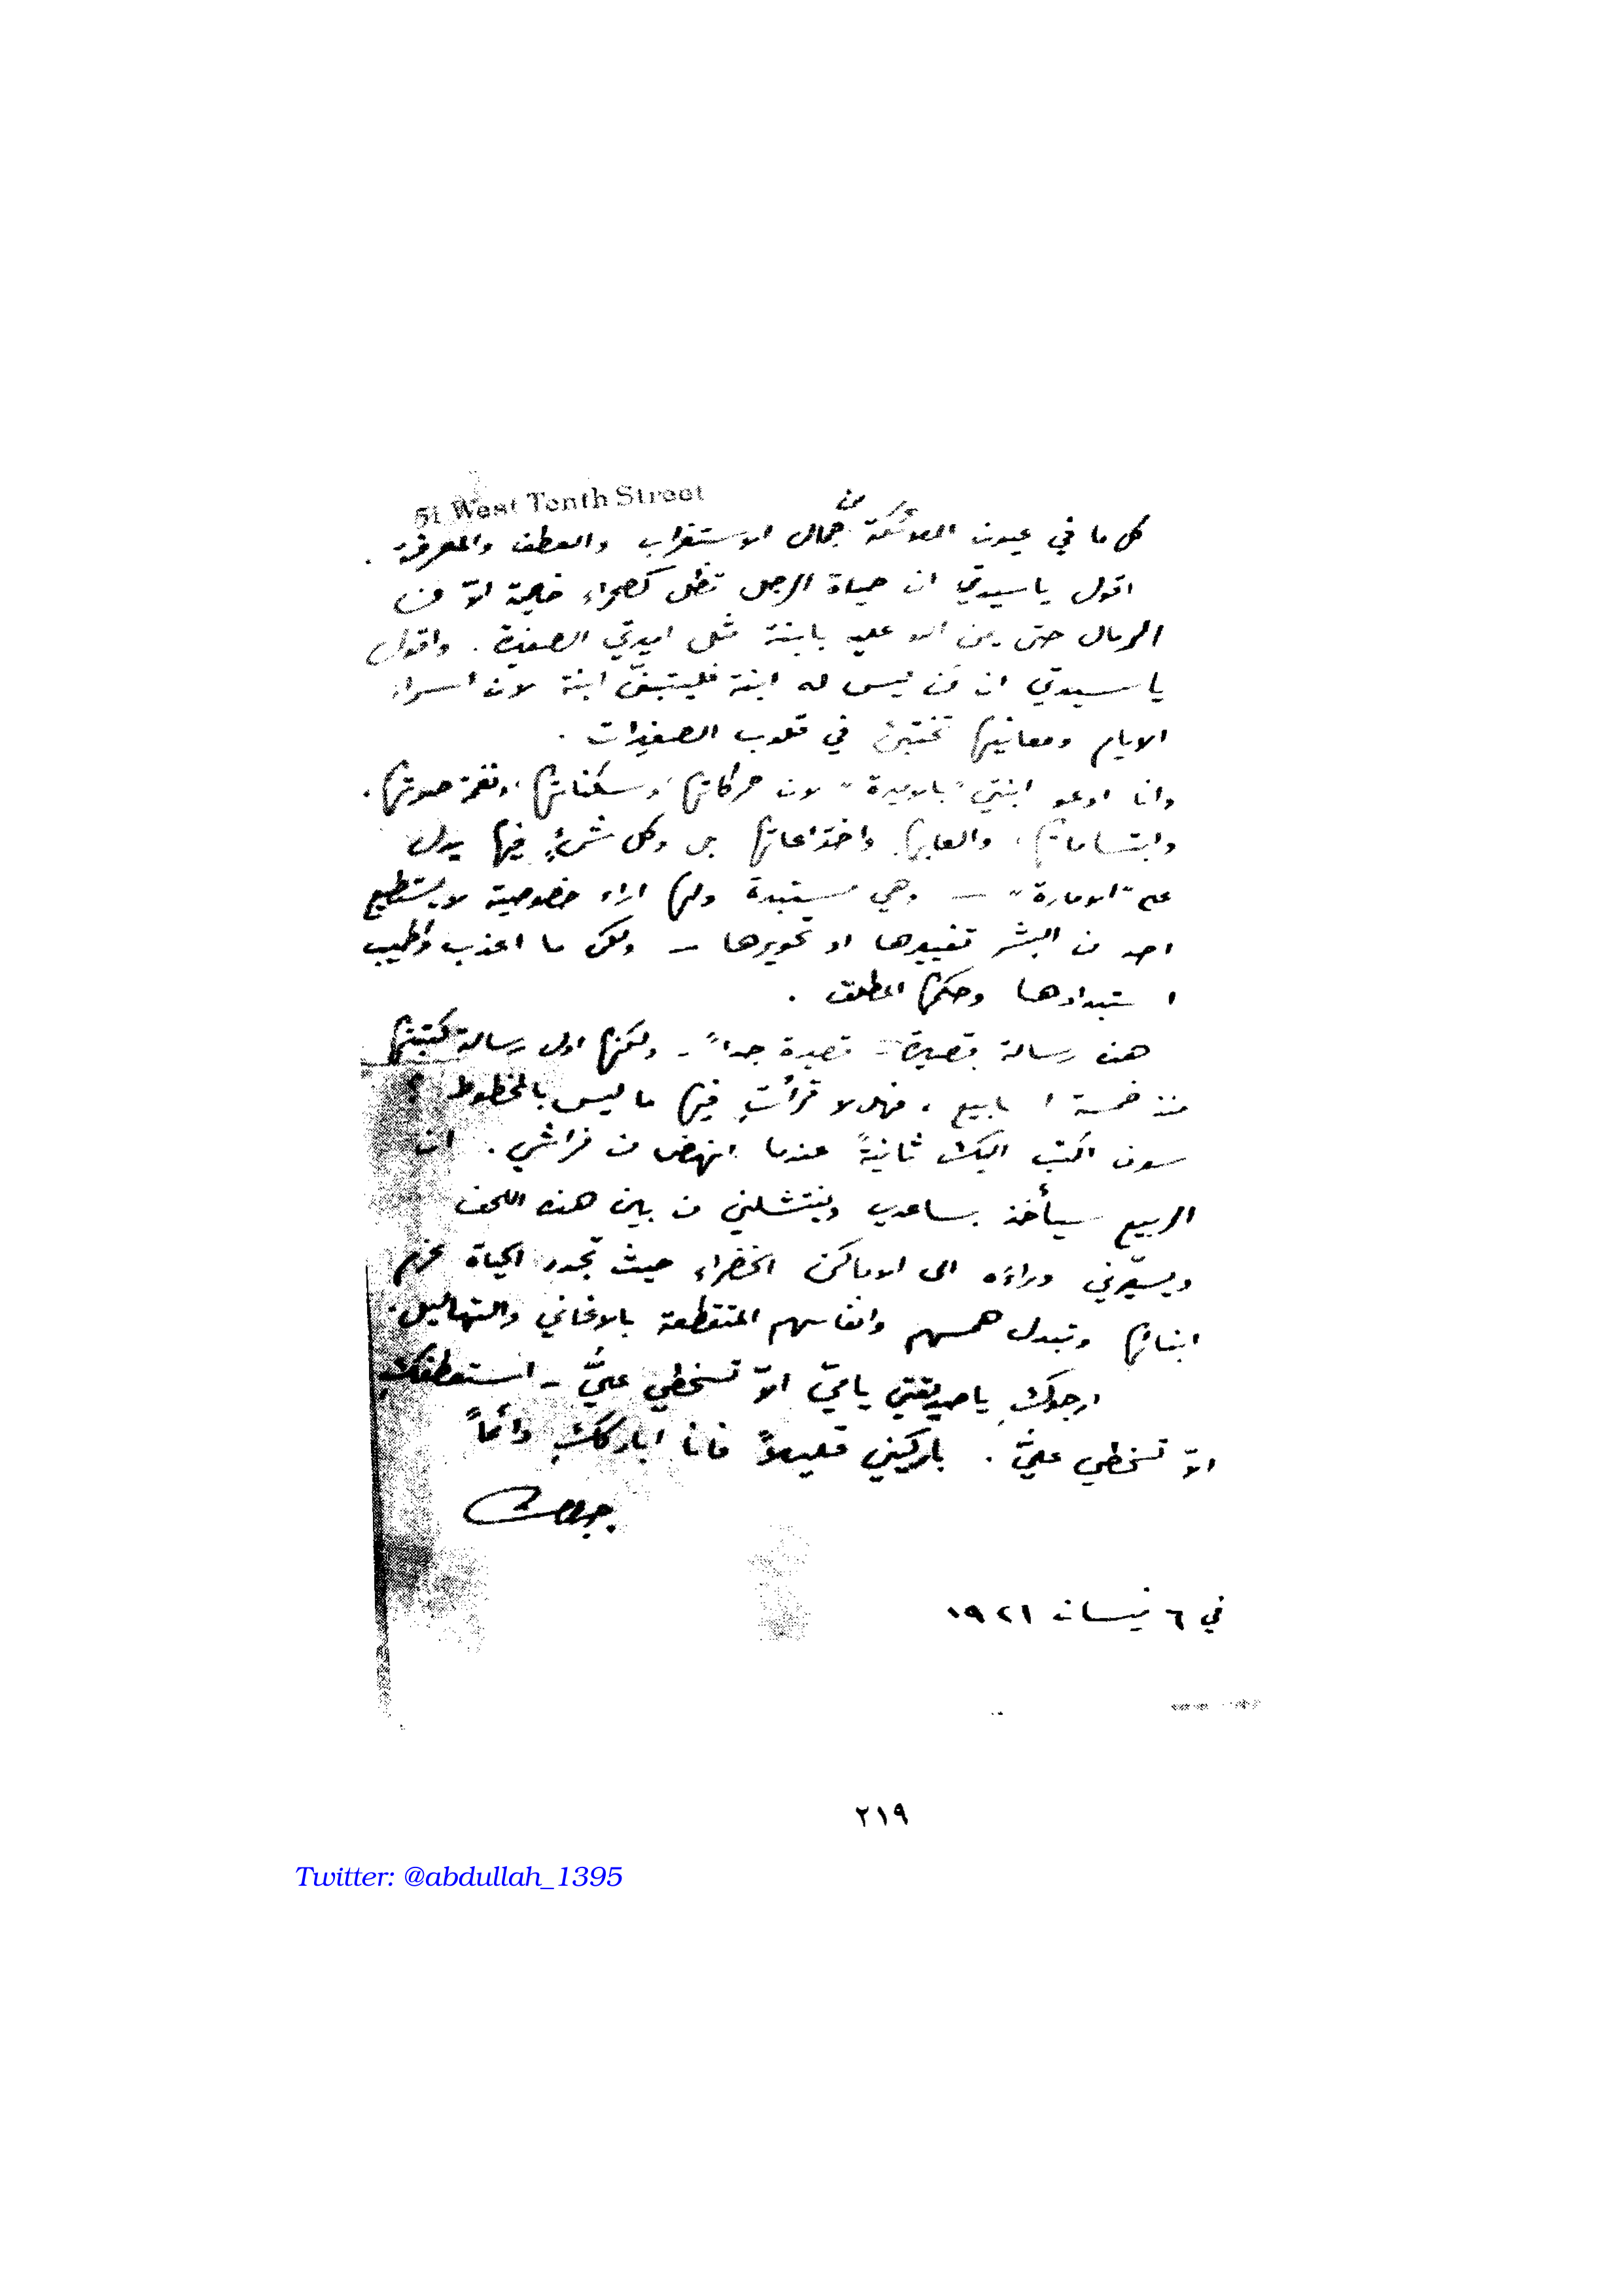 51 West Tenth Street
كل ما في عيون الملائكة من جمال الاستغراب والعطف والمعرفة .
اقول يا سيدتي ان حياة الرجل تظل كصحراء خالية الاّ من
الرمال حتى يمن الله عليه بابنة مثل اميرتي الصغيرة . واقول
يا سيدتي ان من ليس له ابنة فليتبنَّ ابنة لان اسرار
الايام ومعانيها تختبئ في قلوب الصغيرات .
وانا ادعو ابنتي "بالاميرة" لان حركاتها، وسكناتها، ونغمة صوتها،
وابتساماتها، والعابها، واختراعاتها بل وكل شيءٍ فيها يدل
على "الامارة" – وهي مستبدة ولها اراء خصوصية لا يستطيع
احد من البشر تغييرها او تحويرها – ولكن ما اعذب واطيب
استبدادها وحكمها المطلق .
هذه رسالة قصيرة – قصيرة جداً – ولكنها اول رسالة كتبتها
منذ خمسة اسابيع ، فهلا قرأتِ فيها ما ليس بالمخطوط ؟
سوف اكتب اليك ثانيةً عندما انهض من فراشي . ان
الربيع سيأخذ بساعدي وينتشلني من بين هذه اللحف
ويسيّرني وراءه الى الاماكن الخضراء حيث تجدد الحياة عزم
ابنائها وتبدل همسهم وانفاسهم المتقطعة بالاغاني والتهاليل .
ارجوكِ يا صديقتي يا ميّ الاّ تسخطي عليَّ – استعطفكِ
الاّ تسخطي عليَّ . باركيني قليلاً فانا اباركك دائماً
جبران
في ٦ نيسان ١٩٢١
٢١٩
Twitter: @abdullah_1395